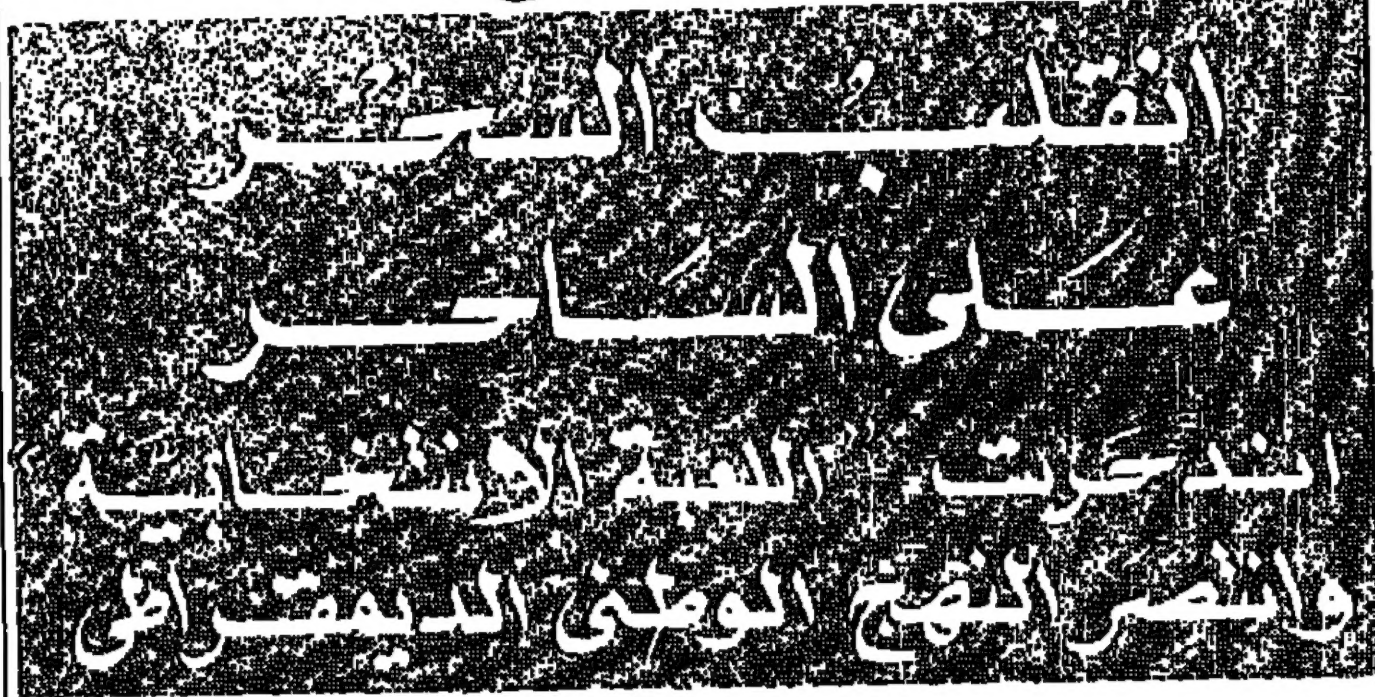 انقلب السحر
على الساحر
اندحرت "اللعبة الانتخابية"
وانتصر النهج الوطني الديمقراطي